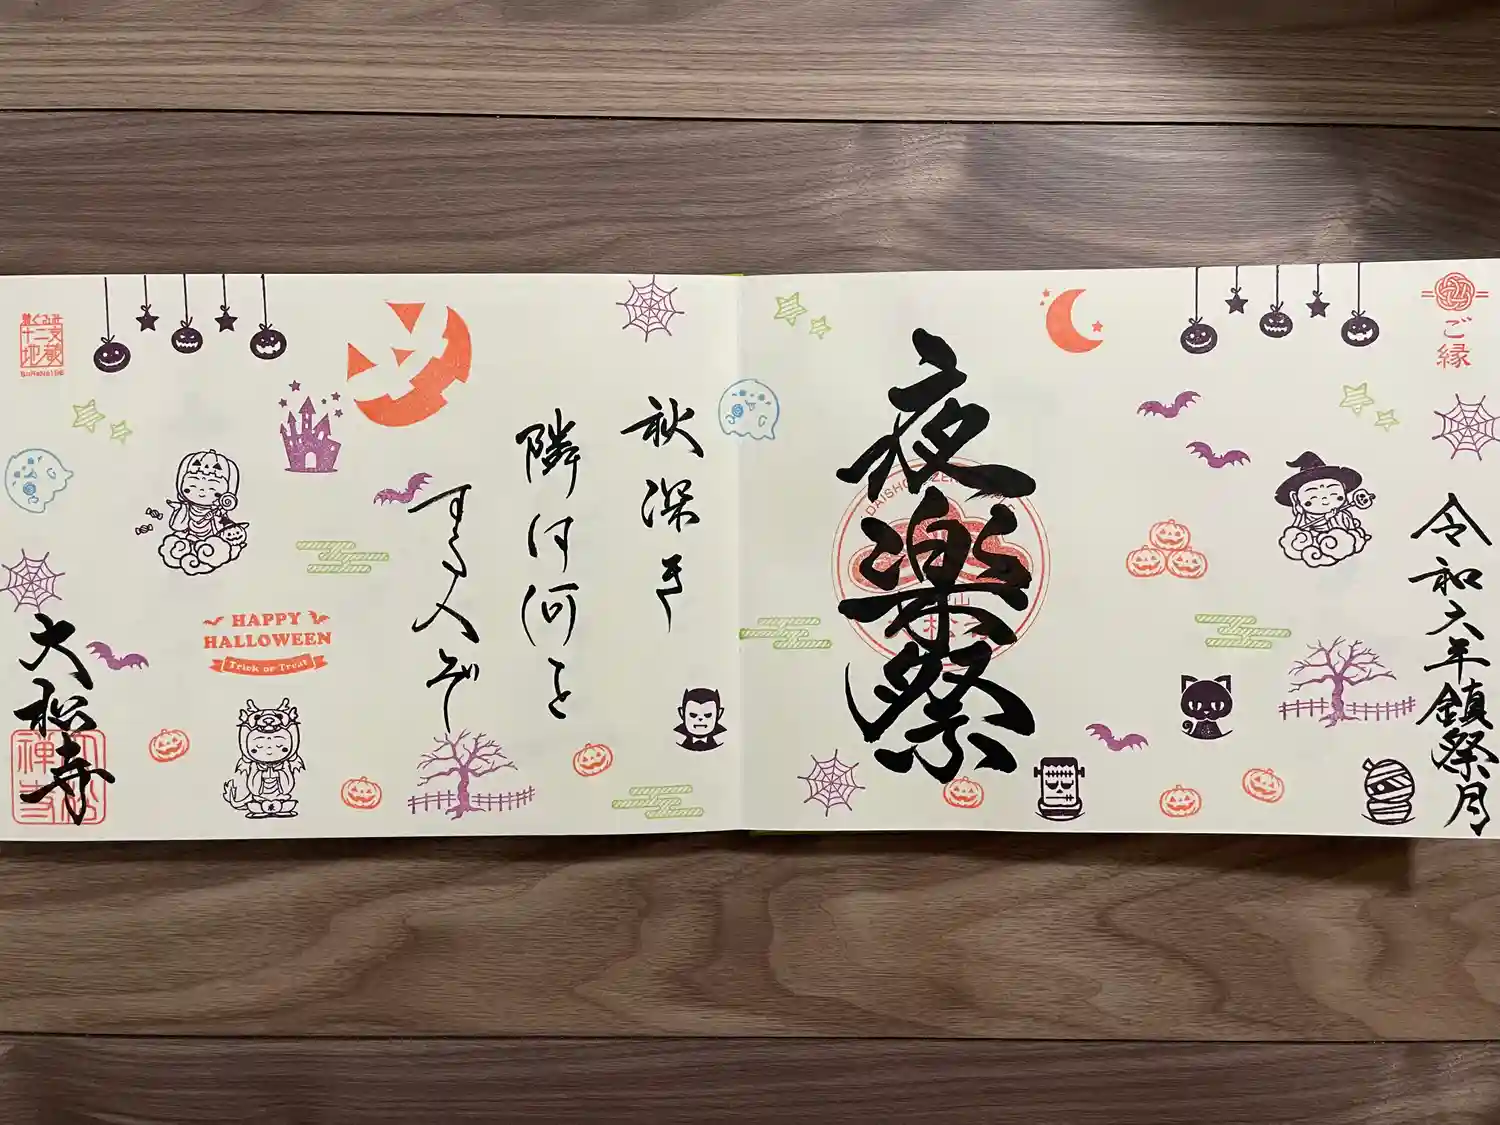 ご縁
令和六年鎮祭月
夜楽祭
DAISHO
秋深き
隣は何を
する人ぞ
HAPPY
HALLOWEEN
Trick or Treat
着ぐるみ
十二支
地蔵
大松寺